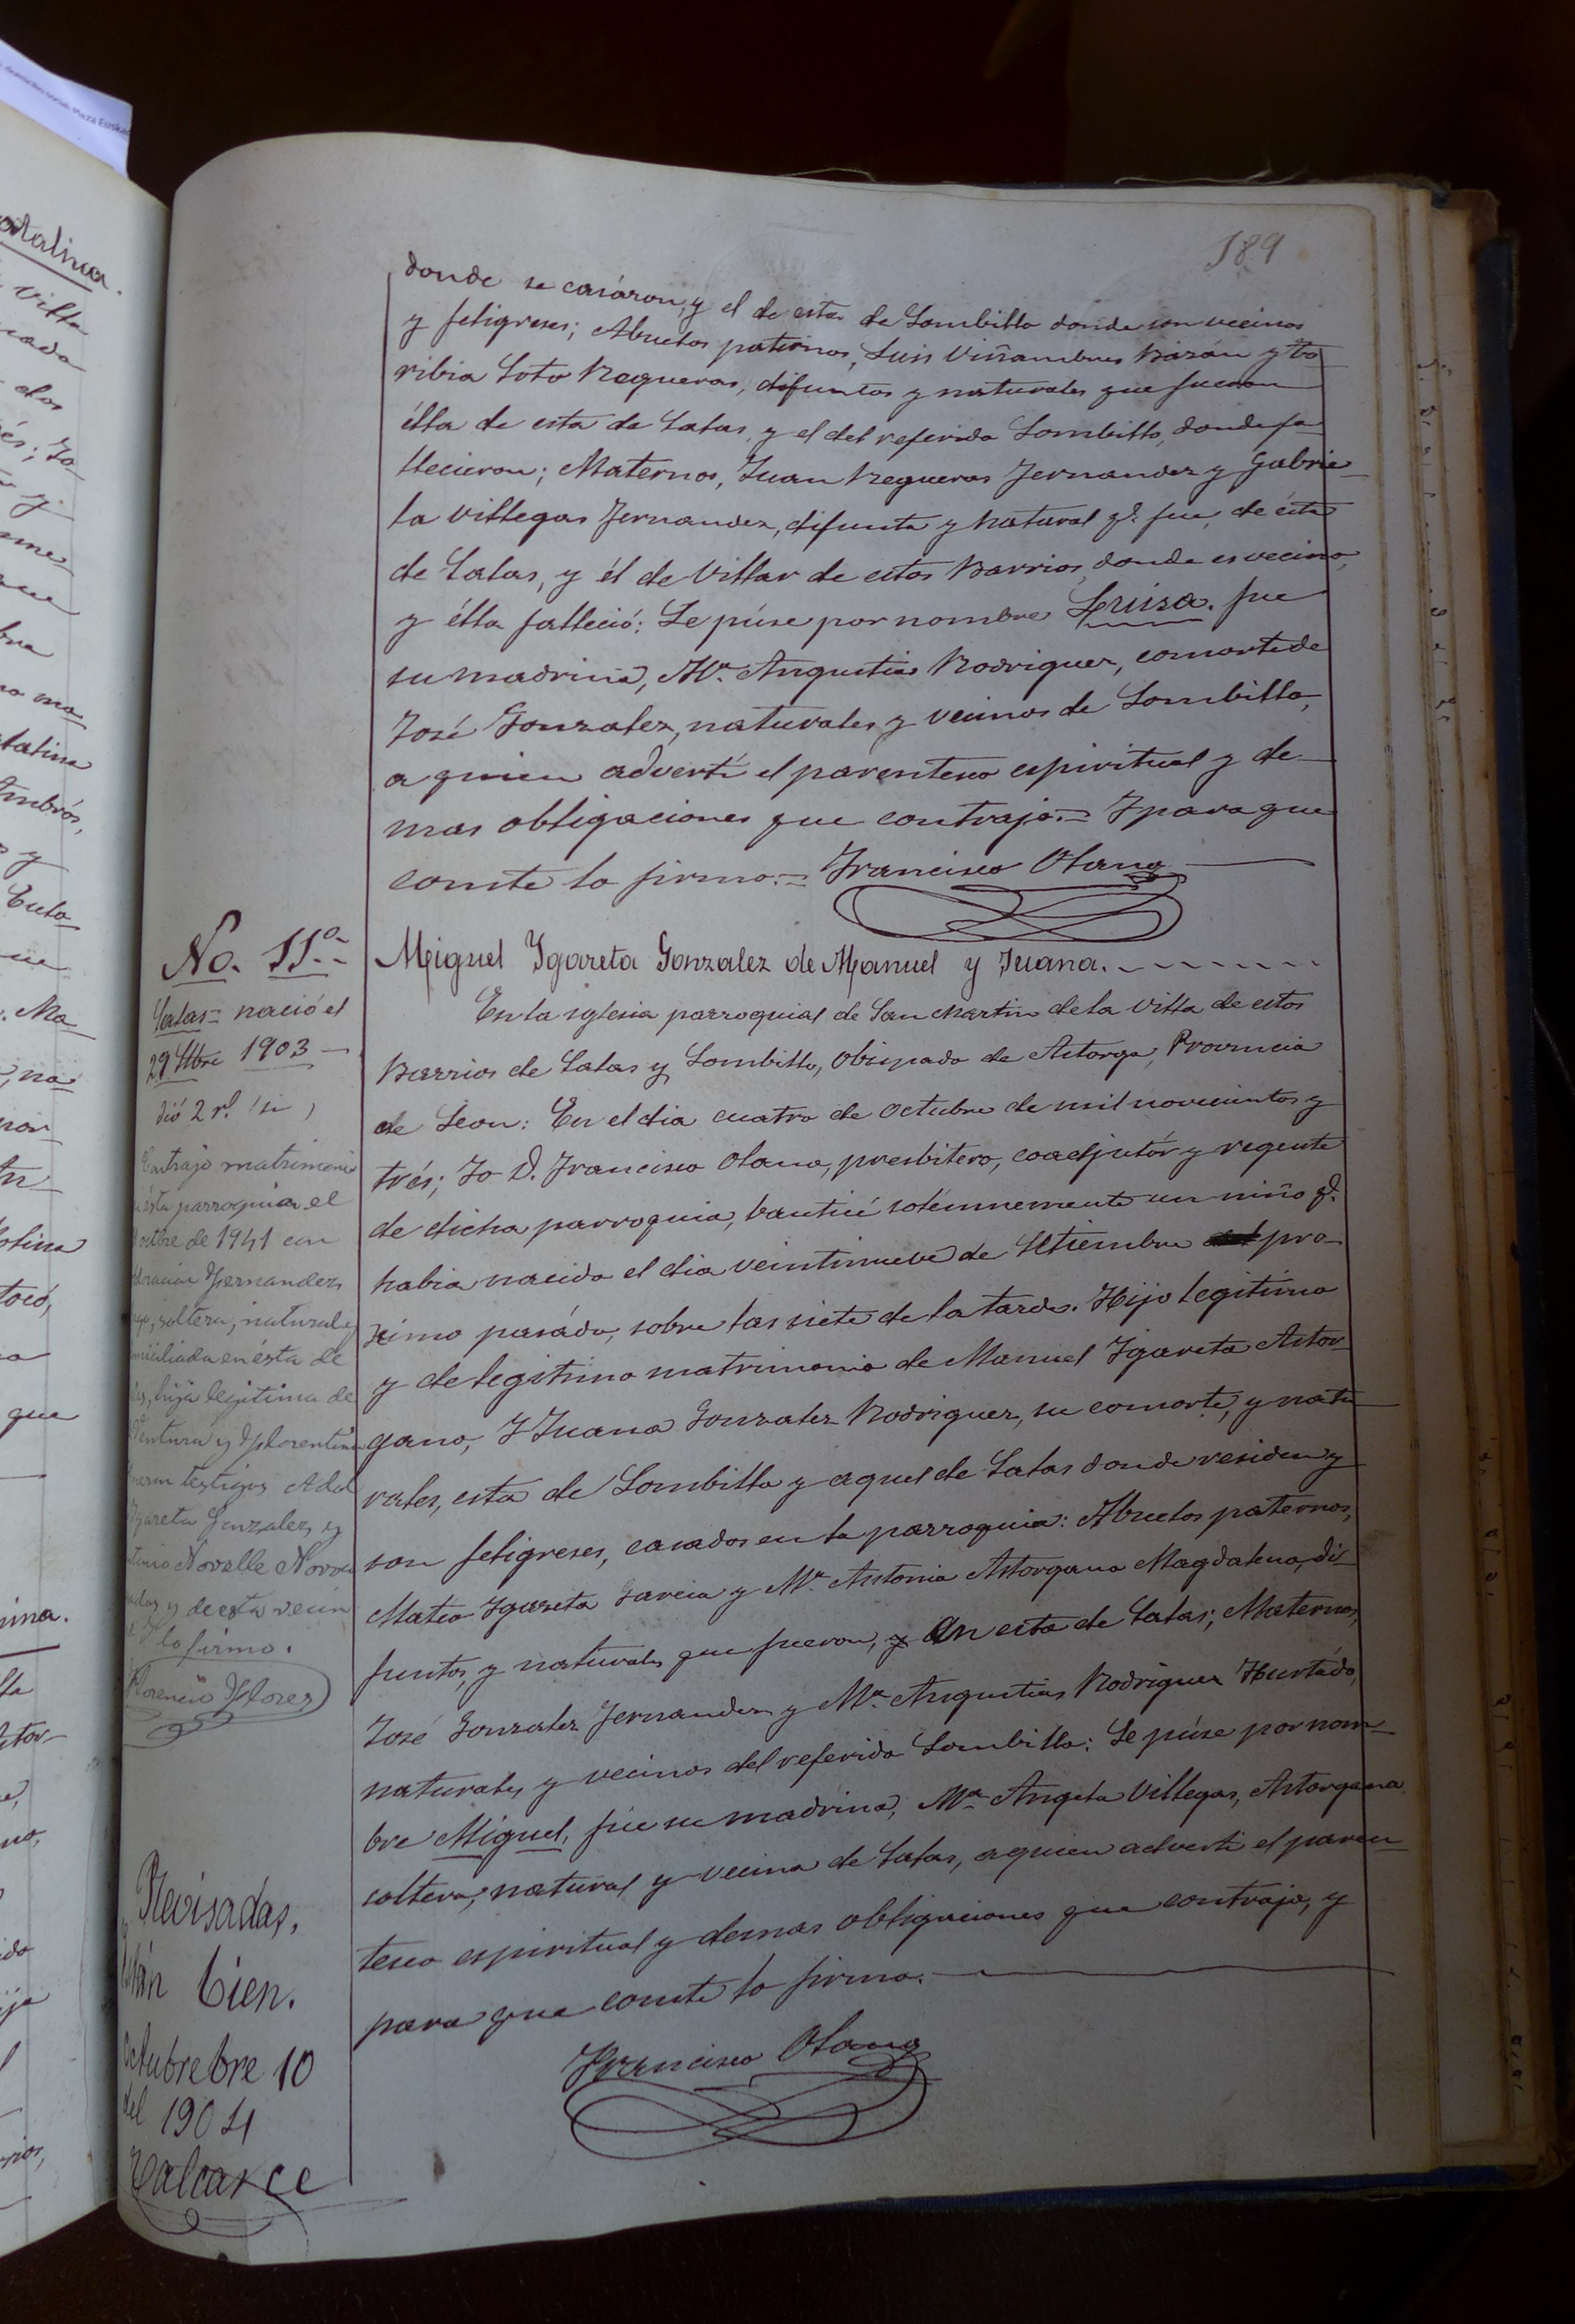 189
donde se casáron, y el de esta de Lombillo donde son vecinos
y feligreses; Abuelos paternos, Luis Viñambres Bazán y To
ribia Soto Regueras, difuntos y naturales que fueron
élla de esta de Salas, y el del referido Lombillo, donde fa
llecieron; Maternos, Juan Regueras Fernandez y Gabrie-
la Villegas Fernandez, difunta y natural q.e fue, de ésta
de Salas, y él de Villar de estos Barrios, donde es vecino,
y élla falleció: Le púse por nombre Luisa. fue
su madrina, Mª. Angustias Rodriguez, consorte de
José Gonzalez, naturales y vecinos de Lombillo,
a quien advertí el parentesco espiritual y de-
mas obligaciones que contrajo.= Y para que
conste lo firmo.= Francisco Olano
No. 11º.
Miguel Ygareta Gonzalez de Manuel y Juana.
Salas= nació el
29 Stbre 1903
dió 2 rs.
En la iglesia parroquial de San Martin de la Villa de estos
Barrios de Salas y Lombillo, Obispado de Astorga, Provincia
de Leon: En el dia cuatro de Octubre de mil novecientos y
trés; Yo D. Francisco Olano, presbitero, coadjutór y regente
de dicha parroquia, bauticé solémnemente un niño q.e
habia nacido el dia veintinueve de Setiembre pro-
ximo pasádo, sobre las siete de la tarde. Hijo legitimo
y de legitimo matrimonio de Manuel Ygareta Astor-
gano, Y Juana Gonzalez Rodriguez, su consorte, y natu-
rales, esta de Lombillo y aquel de Salas donde residen y
son feligreses, casados en la parroquia: Abuelos paternos,
Mateo Ygareta Garcia y Mª. Antonia Astorgano Magdaleno, di-
funtos, y naturales que fueron, y en esta de Salas; Maternos,
José Gonzalez Fernandez y Mª. Angustias Rodriguez Hurtádo,
naturales y vecinos del referido Lombillo: Le púse por nom-
bre Miguel, fue su madrina, Mª. Angela Villegas, Astorgano
soltera, natural y vecina de Salas, a quien advertí el paren-
tesco espiritual y demas obligaciones que contrajo, y
para que conste lo firmo.
Francisco Olano
Contrajo matrimonio
en ésta parroquia el
octbre de 1941 con
Fernandez
soltera, natural y
domiciliada en ésta de
Salas, hija legitima de
Ventura y Florentina
Fueron testigos
Ygareta Gonzalez y
Antonio Novalle
y de esta vecin
lo firmo.
Florencio Flores
Revisadas,
están bien.
Octubrebre 10
del 1904
Valcarce